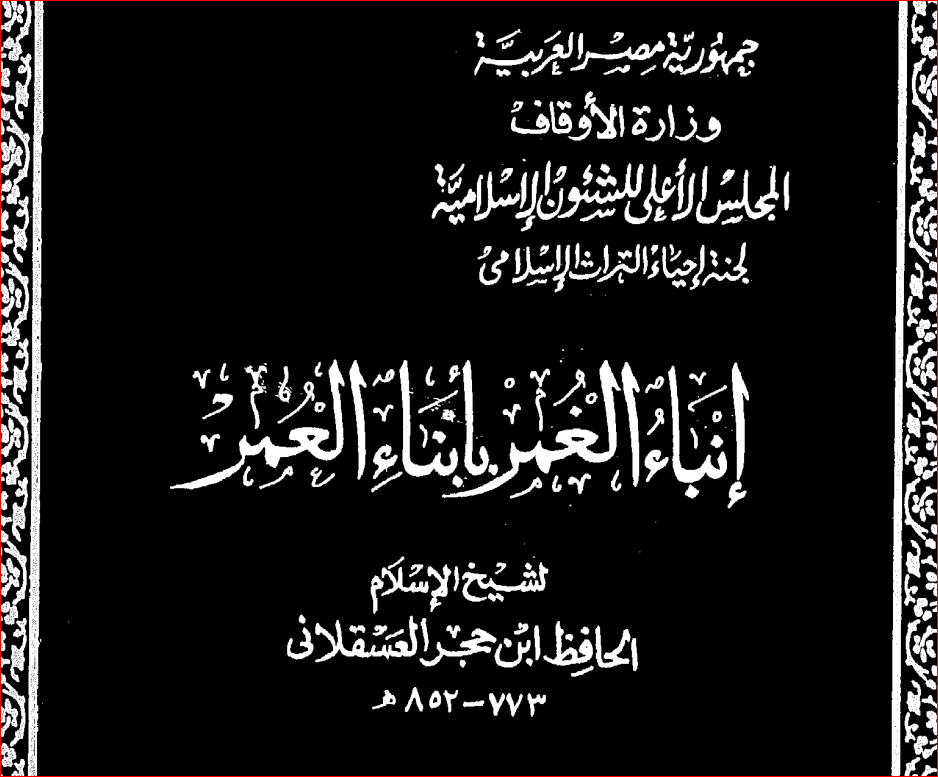 جمهورية مصر العربية
وزارة الأوقاف
المجلس الأعلى للشئون الإسلامية
لجنة إحياء التراث الإسلامى
إنباء الغمر بأبناء العمر
لشيخ الإسلام
الحافظ ابن حجر العسقلانى
٧٧٣ - ٨٥٢ هـ